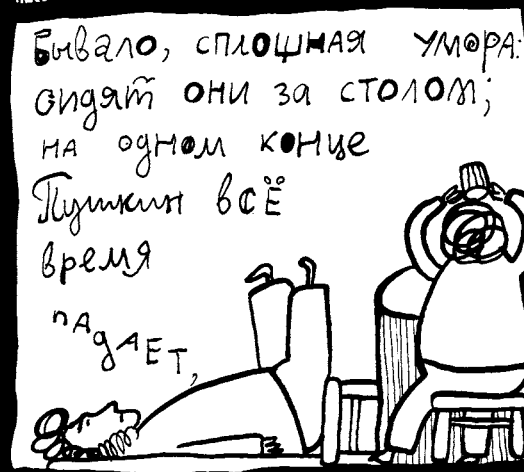 Бывало, сплошная умора:
сидят они за столом;
на одном конце
Пушкин всё
время
падает,